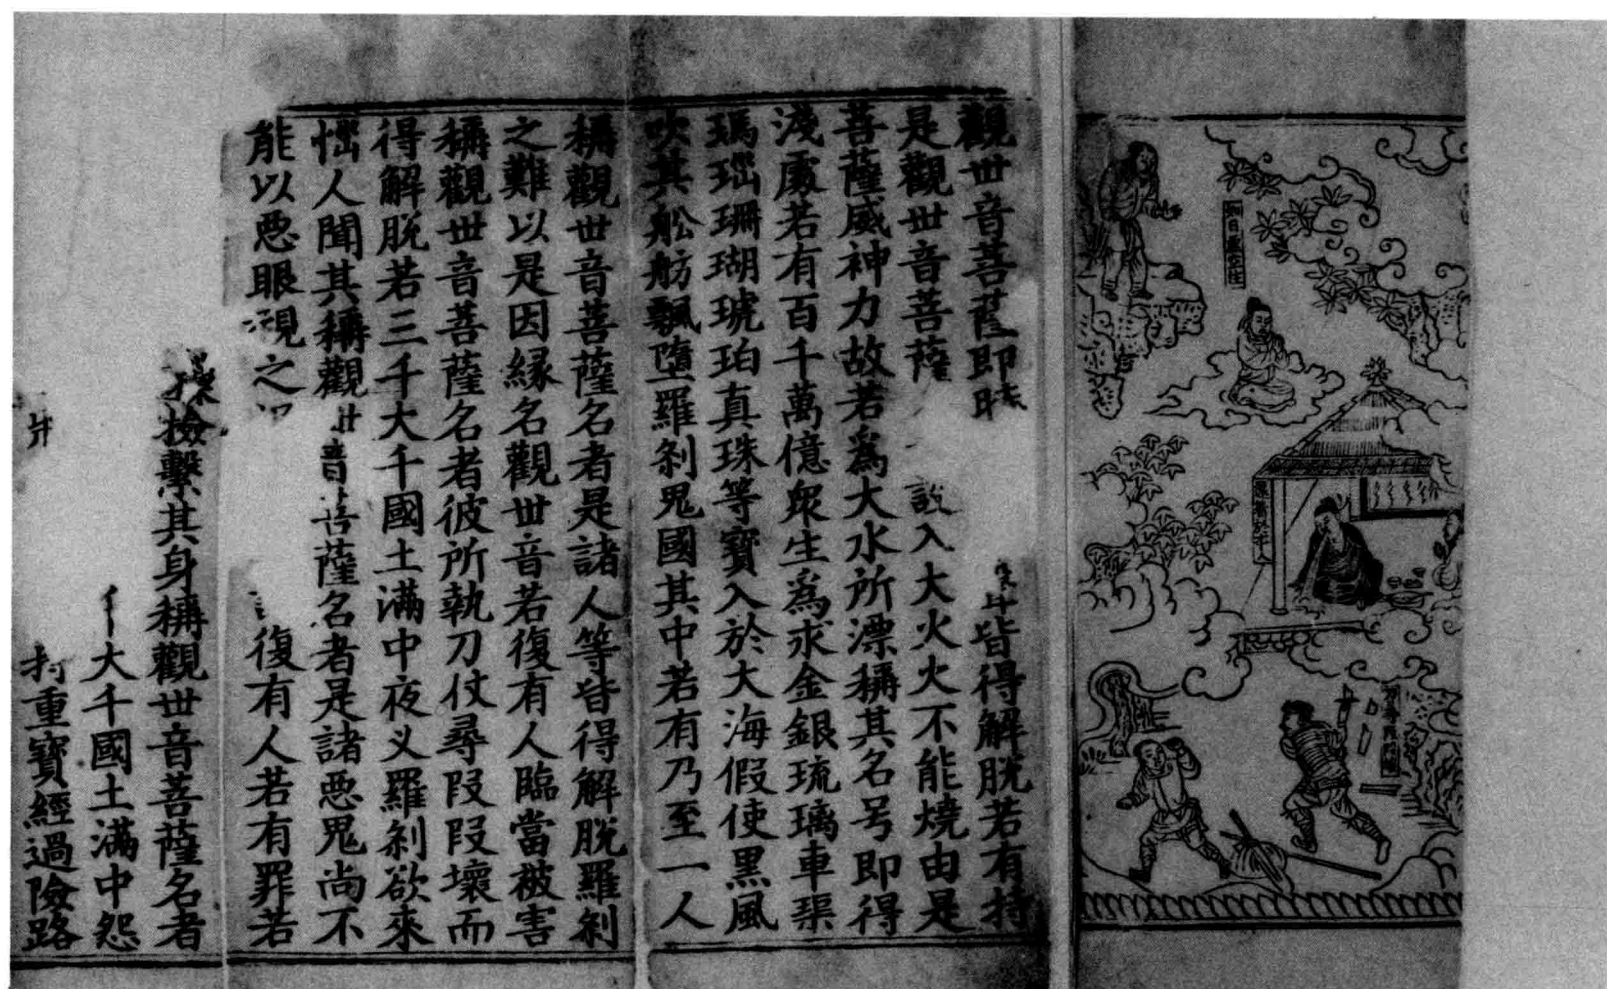 如日虛空住
還著於本人
刀尋段段壞
觀世音菩薩即時
皆得解脫若有持
是觀世音菩薩
設入大火火不能燒由是
菩薩威神力故若爲大水所漂稱其名号即得
淺處若有百千萬億衆生爲求金銀琉璃車𤦲
瑪瑙珊瑚琥珀真珠等寶入於大海假使黑風
吹其舩舫飄墮羅剎鬼國其中若有乃至一人
稱觀世音菩薩名者是諸人等皆得解脫羅剎
之難以是因緣名觀世音若復有人臨當被害
稱觀世音菩薩名者彼所執刀仗尋段段壞而
得解脫若三千大千國土滿中夜叉羅剎欲來
惱人聞其稱觀世音菩薩名者是諸惡鬼尚不
能以惡眼視之
復有人若有罪若
檢繫其身稱觀世音菩薩名者
大千國土滿中怨
重寶經過險路